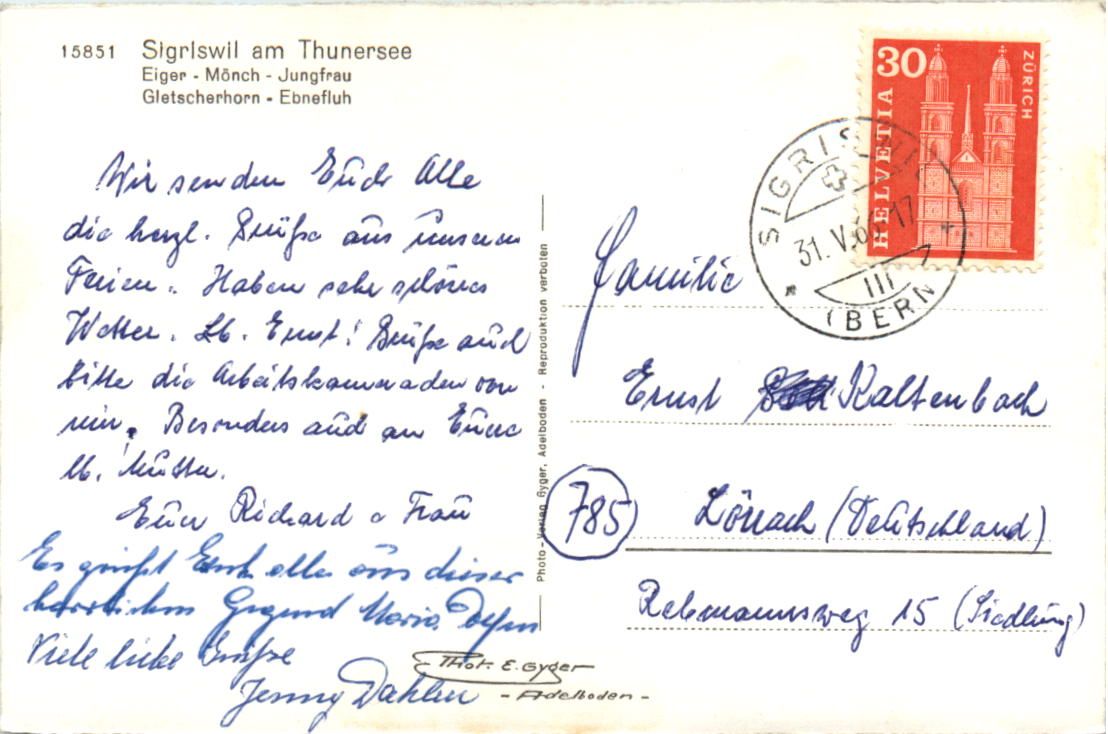 15851 Sigriswil am Thunersee
Eiger - Mönch - Jungfrau
Gletscherhorn - Ebnefluh
Wir senden Euch Alle
die herzl. Grüße aus unseren
Ferien. Haben sehr schönes
Wetter. Lb. Ernst! Grüße auch
bitte die Arbeitskameraden von
mir. Besonders auch an Eure
lb. Mutter.
Euer Richard u Frau
Es grüßt Euch alle aus dieser
herrlichen Gegend Maria
Viele liebe Grüße
Jenny Dahlen
Photo-Verlag Gyger, Adelboden - Reproduktion verboten
Phot. E. Gyger
- Adelboden -
30
HELVETIA
ZÜRICH
SIGRISWIL
31. V. 17
III
(BERN
Familie
Ernst Kaltenbach
785
Lörrach (Deutschland)
Rebmannsweg 15 (Siedlung)